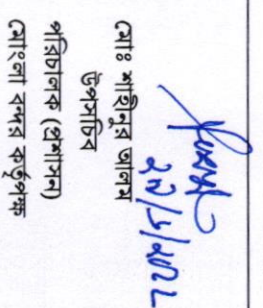 ২৭/৬/২০২২
মোঃ শাহীনুর আলম
উপসচিব
পরিচালক (প্রশাসন)
মোংলা বন্দর কর্তৃপক্ষ